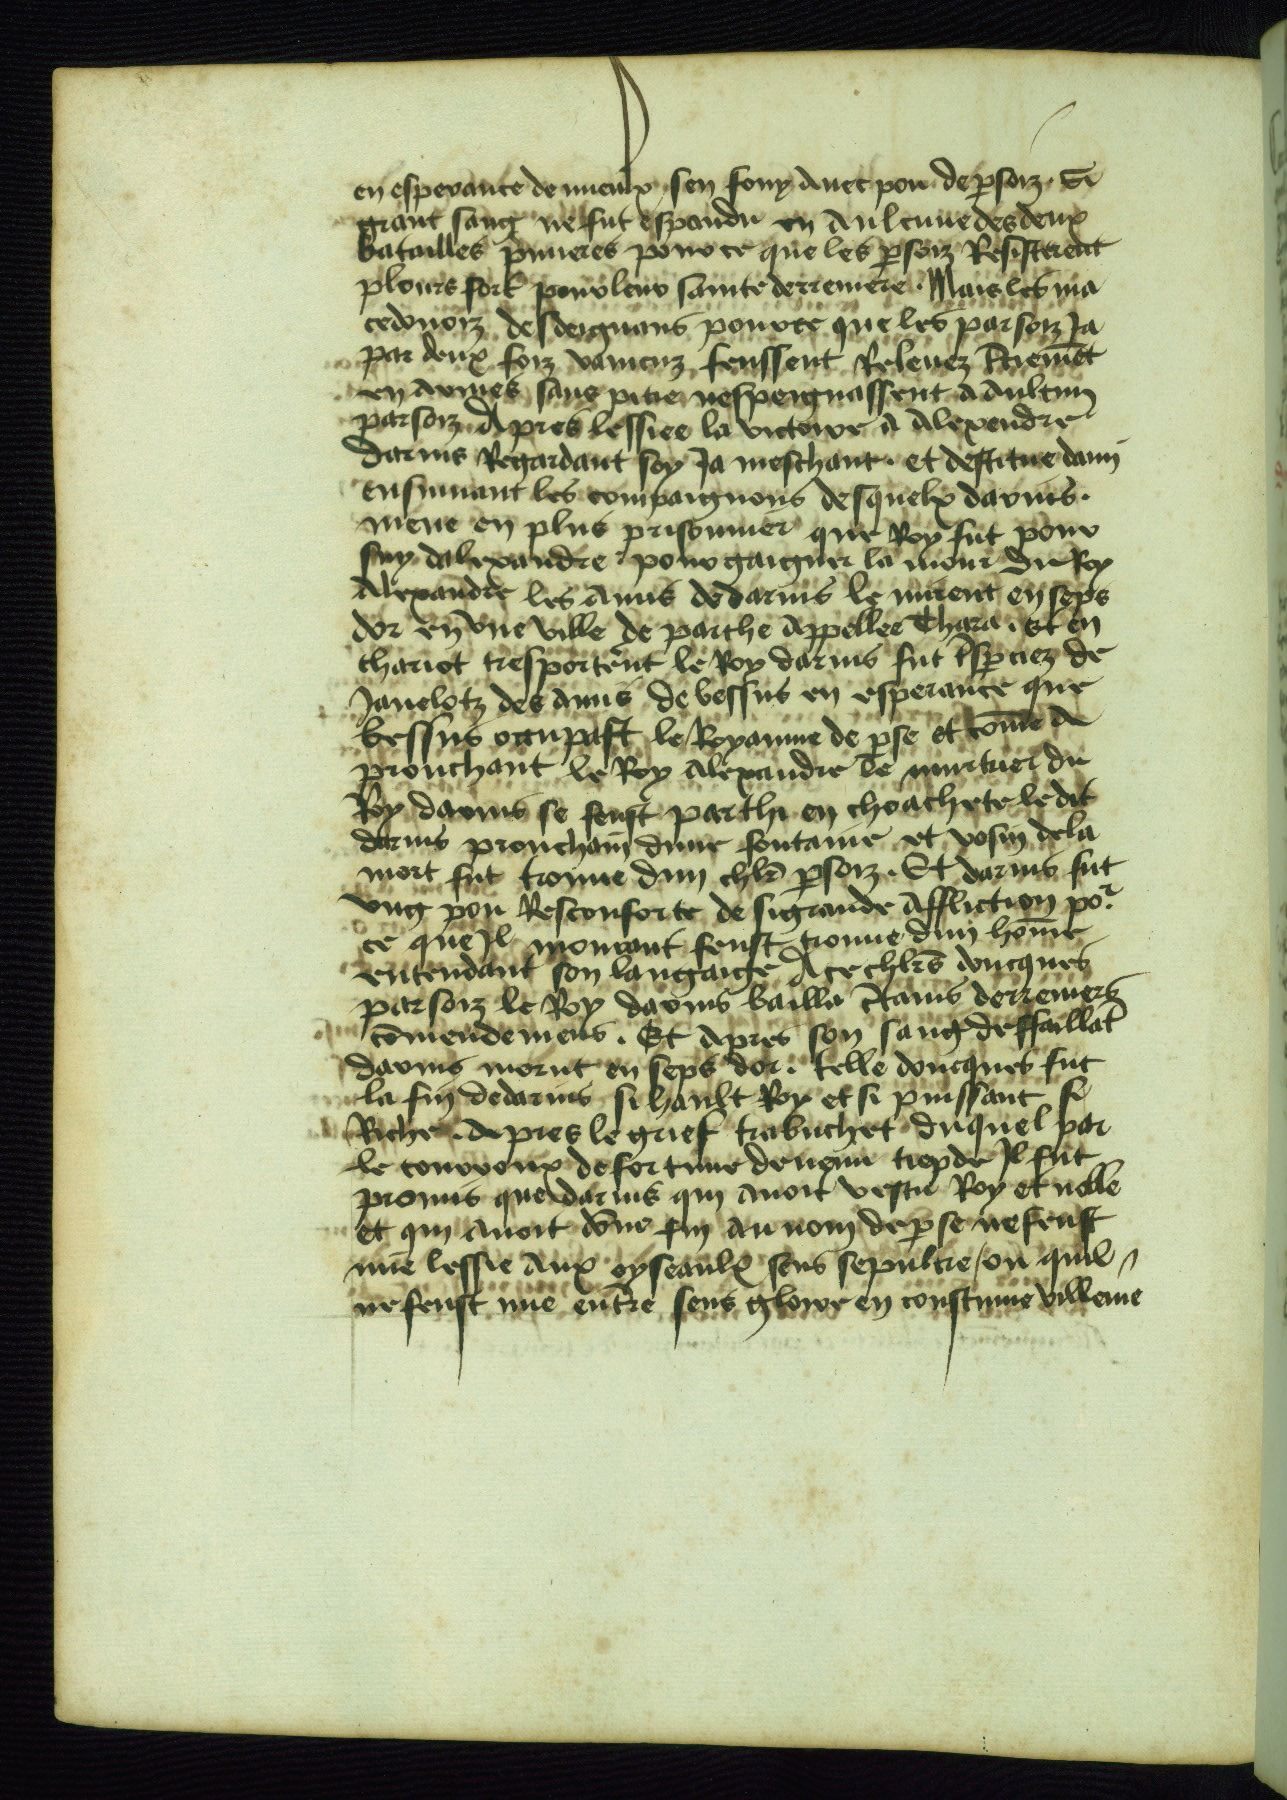 en esperance de mieulx sen fouy avec pou de psoiz . Si
grant sang ne fut espandu en aulcune des deux
batailles pmieres pour ce que les psoiz Resisterent
plours fort pour leur saincte derreniere . Mais les ma
cedonoiz desdeignans pource que les parsoiz Ja
par deux foiz vaincuz feussent Relevez
en armes sans pitie nespeignassent a aulcun
parsoiz Apres lessiee la victoire a Alexendre
darius Regardant soy Ja meschant . et destitue dami
ensuivant les compaignons desquelx darius .
mene en plus prisonnier que Roy fut pour
suy dalexandre pour gaigner la mour du Roy
Alexandre les amis de darius le mirent en seps
dor en une ville de parthe Appellee Thara . Et en
chariot tresportent le Roy darius fut tspciez de
Javelotz des amis de bessus en esperance que
bessus occupast le Royaume de pse et come a
prouchant le Roy Alexandre le murtrier du
Roy darius se feust parthi en choachete ledit
darius prouchain dune fontaine et vosin dela
mort fut trouve dun chlr psoiz . Et darius fut
ung pou Resconforte de sigrande affliction por
ce que Il mourant feust trouve dun home
entendant son langaige A ce chlrs doncques
parsoiz le Roy darius bailla derreniers
comendemens . Et apres son sang deffaillat
darius morut en seps dor . telle doncques fut
la fin dedarius si hault Roy et si puissant si
Riche . Apres le grief trabuchet duquel par
le courroux de fortune devenu tiepde Il fut
promis que darius qui avoit vestu Roy et noble
et qui avoit done fin au nom de pse ne feust
mie lessie aux oyseaulx sens sepulcre / ou quil
ne feust mie entre sens gloire en coustume villeine